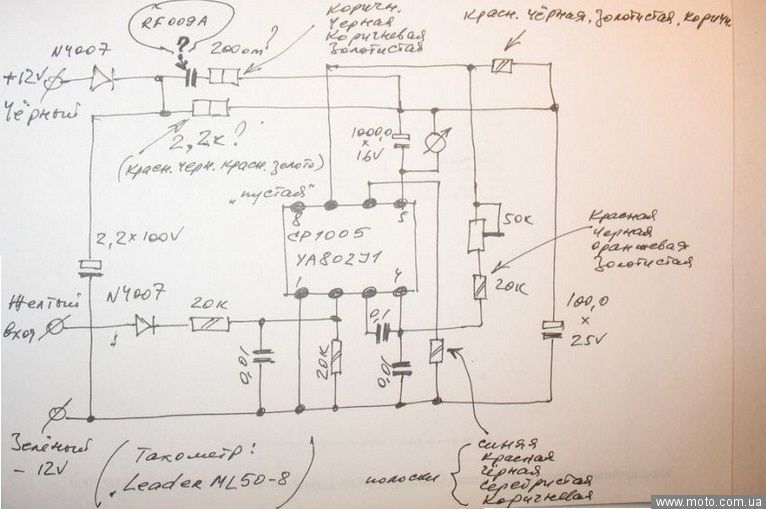 RF009A
?
N4007
200om?
коричн.
Черная
Коричневая
Золотистая
красн. чёрная, золотистая, коричн.
+12V
Чёрный
2,2к?
(красн. черн. красн. золото)
1000,0
х
16V
"пустая"
8
5
CP1005
YA802J1
1
4
50к
Красная
Черная
Оранжевая
Золотистая
2,2×100V
Желтый
вход
N4007
20к
20к
0,1
0,01
20к
0,01
100,0
х
25V
Зелёный
- 12V
(Тахометр:
Leader ML50-8)
полоски
синяя
красная
чёрная
серебристая
коричневая
www.moto.com.ua